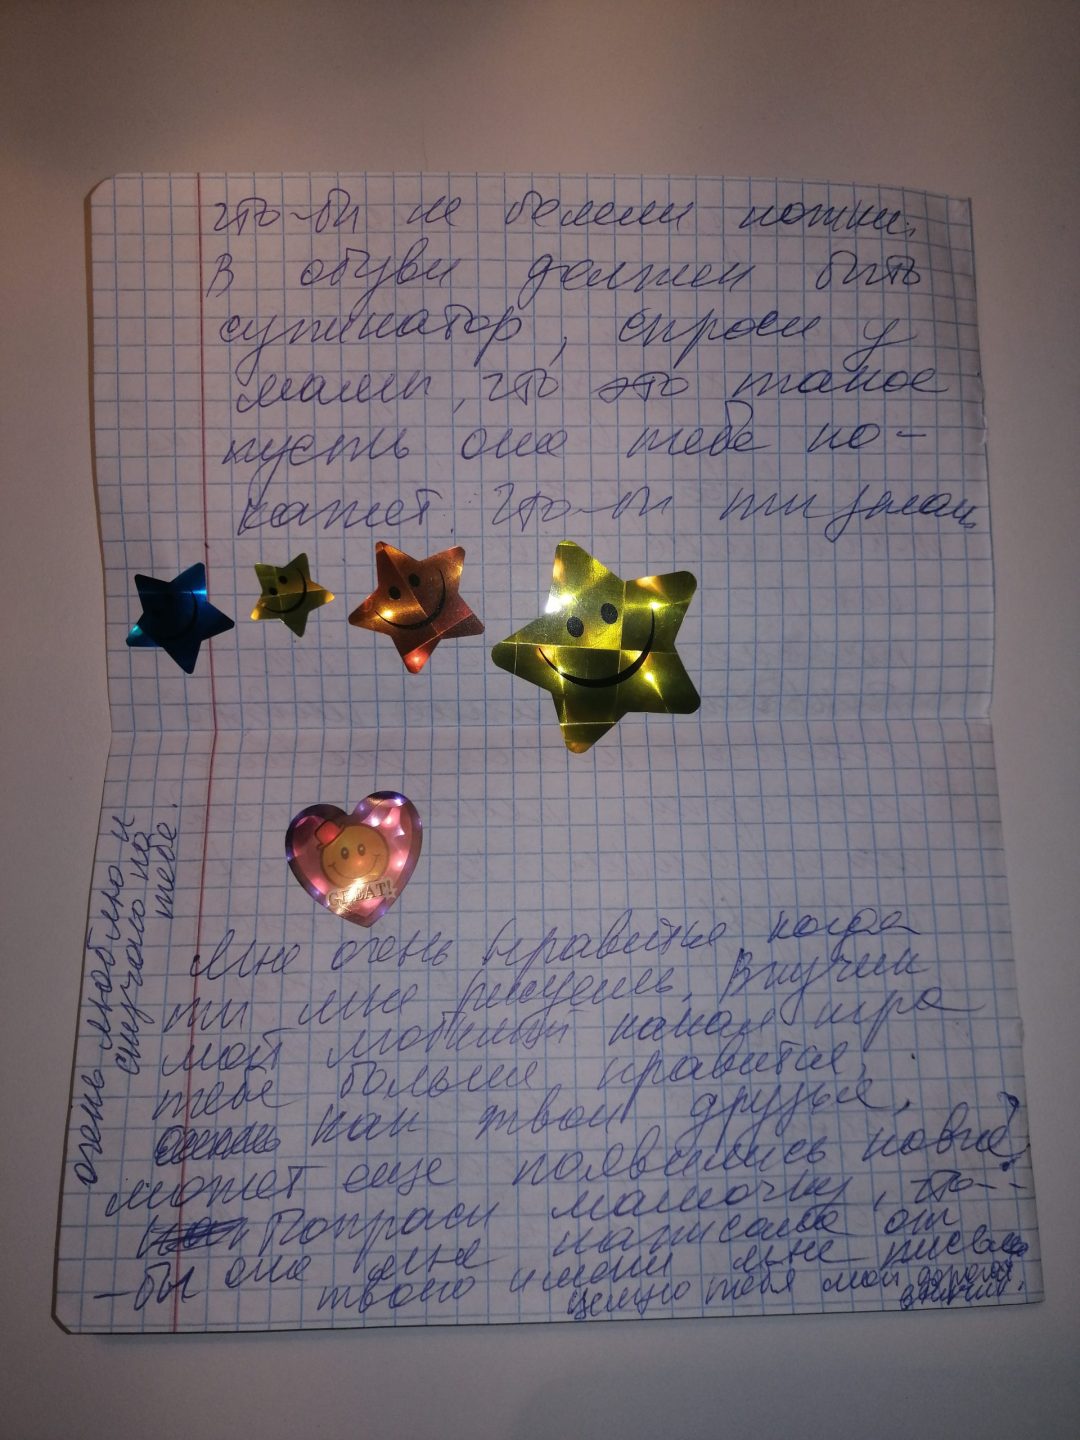 что-бы не болели ножки.
В обуви должен быть
супинатор, спроси у
мамы, что это такое
пусть она тебе по-
кажет. Что-бы ты знал,
GREAT!
Мне очень нравится когда
ты мне рисуешь. Внучик
мой любимый какая игра
тебе больше нравится,
как твои друзья,
может еще появились новые?
Попраси мамочку, что-
-бы она мне написала от
твоего имени мне письмо
целую тебя мой дорогой
внучик.
очень люблю и
скучаю по
тебе.